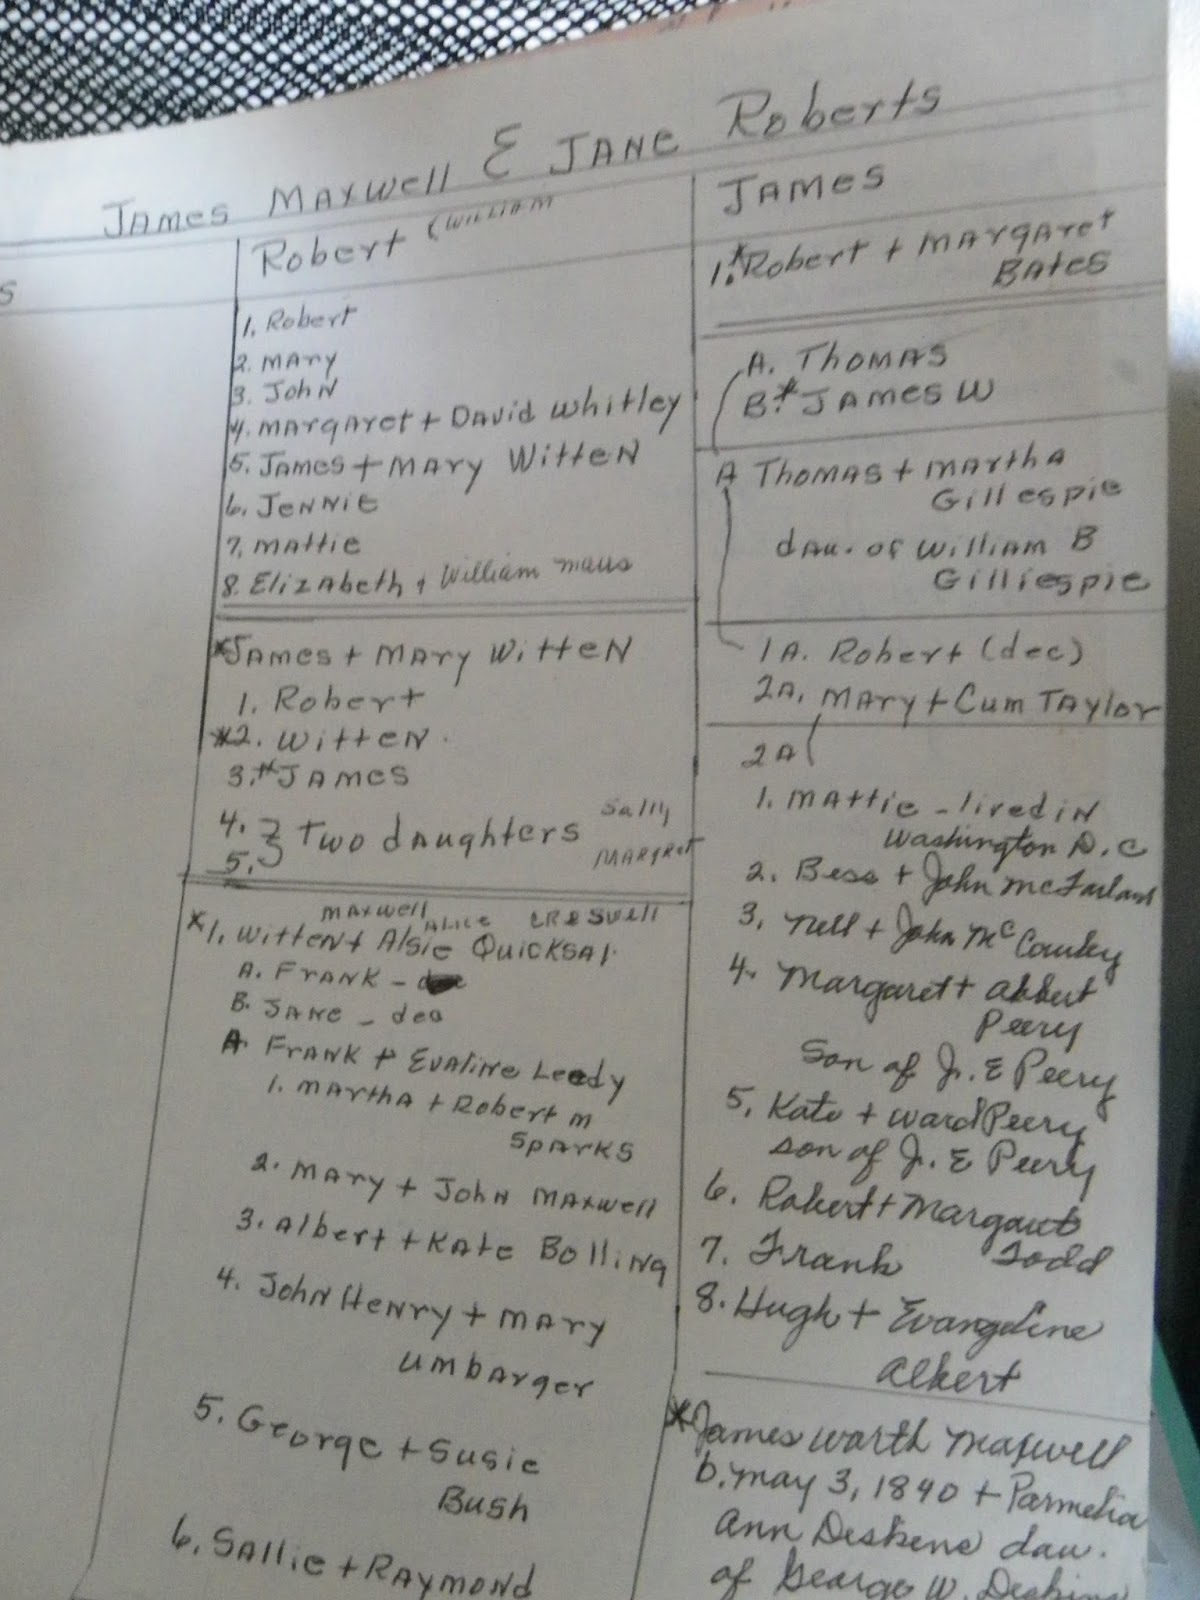 James Maxwell & Jane Roberts
s
Robert (William
1. Robert
2. Mary
3. John
4. Margaret + David Whitley
5. James + Mary Witten
6. Jennie
7. Mattie
8. Elizabeth + William Maus
*James + Mary Witten
1. Robert
*2. Witten.
3.* James
4. } Two daughters Sally
5. Margret
Maxwell Alice Creswell
*1. Witten + Alsie Quicksal.
A. Frank -
B. Jane - dec
A. Frank + Evaline Leedy
1. Martha + Robert M
Sparks
2. Mary + John Maxwell
3. Albert + Kate Bolling
4. John Henry + Mary
Umbarger
5. George + Susie
Bush
6. Sallie + Raymond
James
1.* Robert + Margaret
Bates
A. Thomas
B.* James W
A Thomas + Martha
Gillespie
dau. of William B
Gilliespie
1A. Robert (dec)
2A. Mary + Cum Taylor
2A
1. Mattie - lived in
Washington D.C
2. Bess + John McFarland
3. Nell + John McCauley
4. Margaret + Albert
Peery
Son of J. E Peery
5. Kate + Ward Peery
son of J. E Peery
6. Robert + Margaret
Todd
7. Frank
8. Hugh + Evangeline
Albert
*James Worth Maxwell
b. May 3, 1840 + Parmelia
Ann Deskins dau.
of George W. Deskins